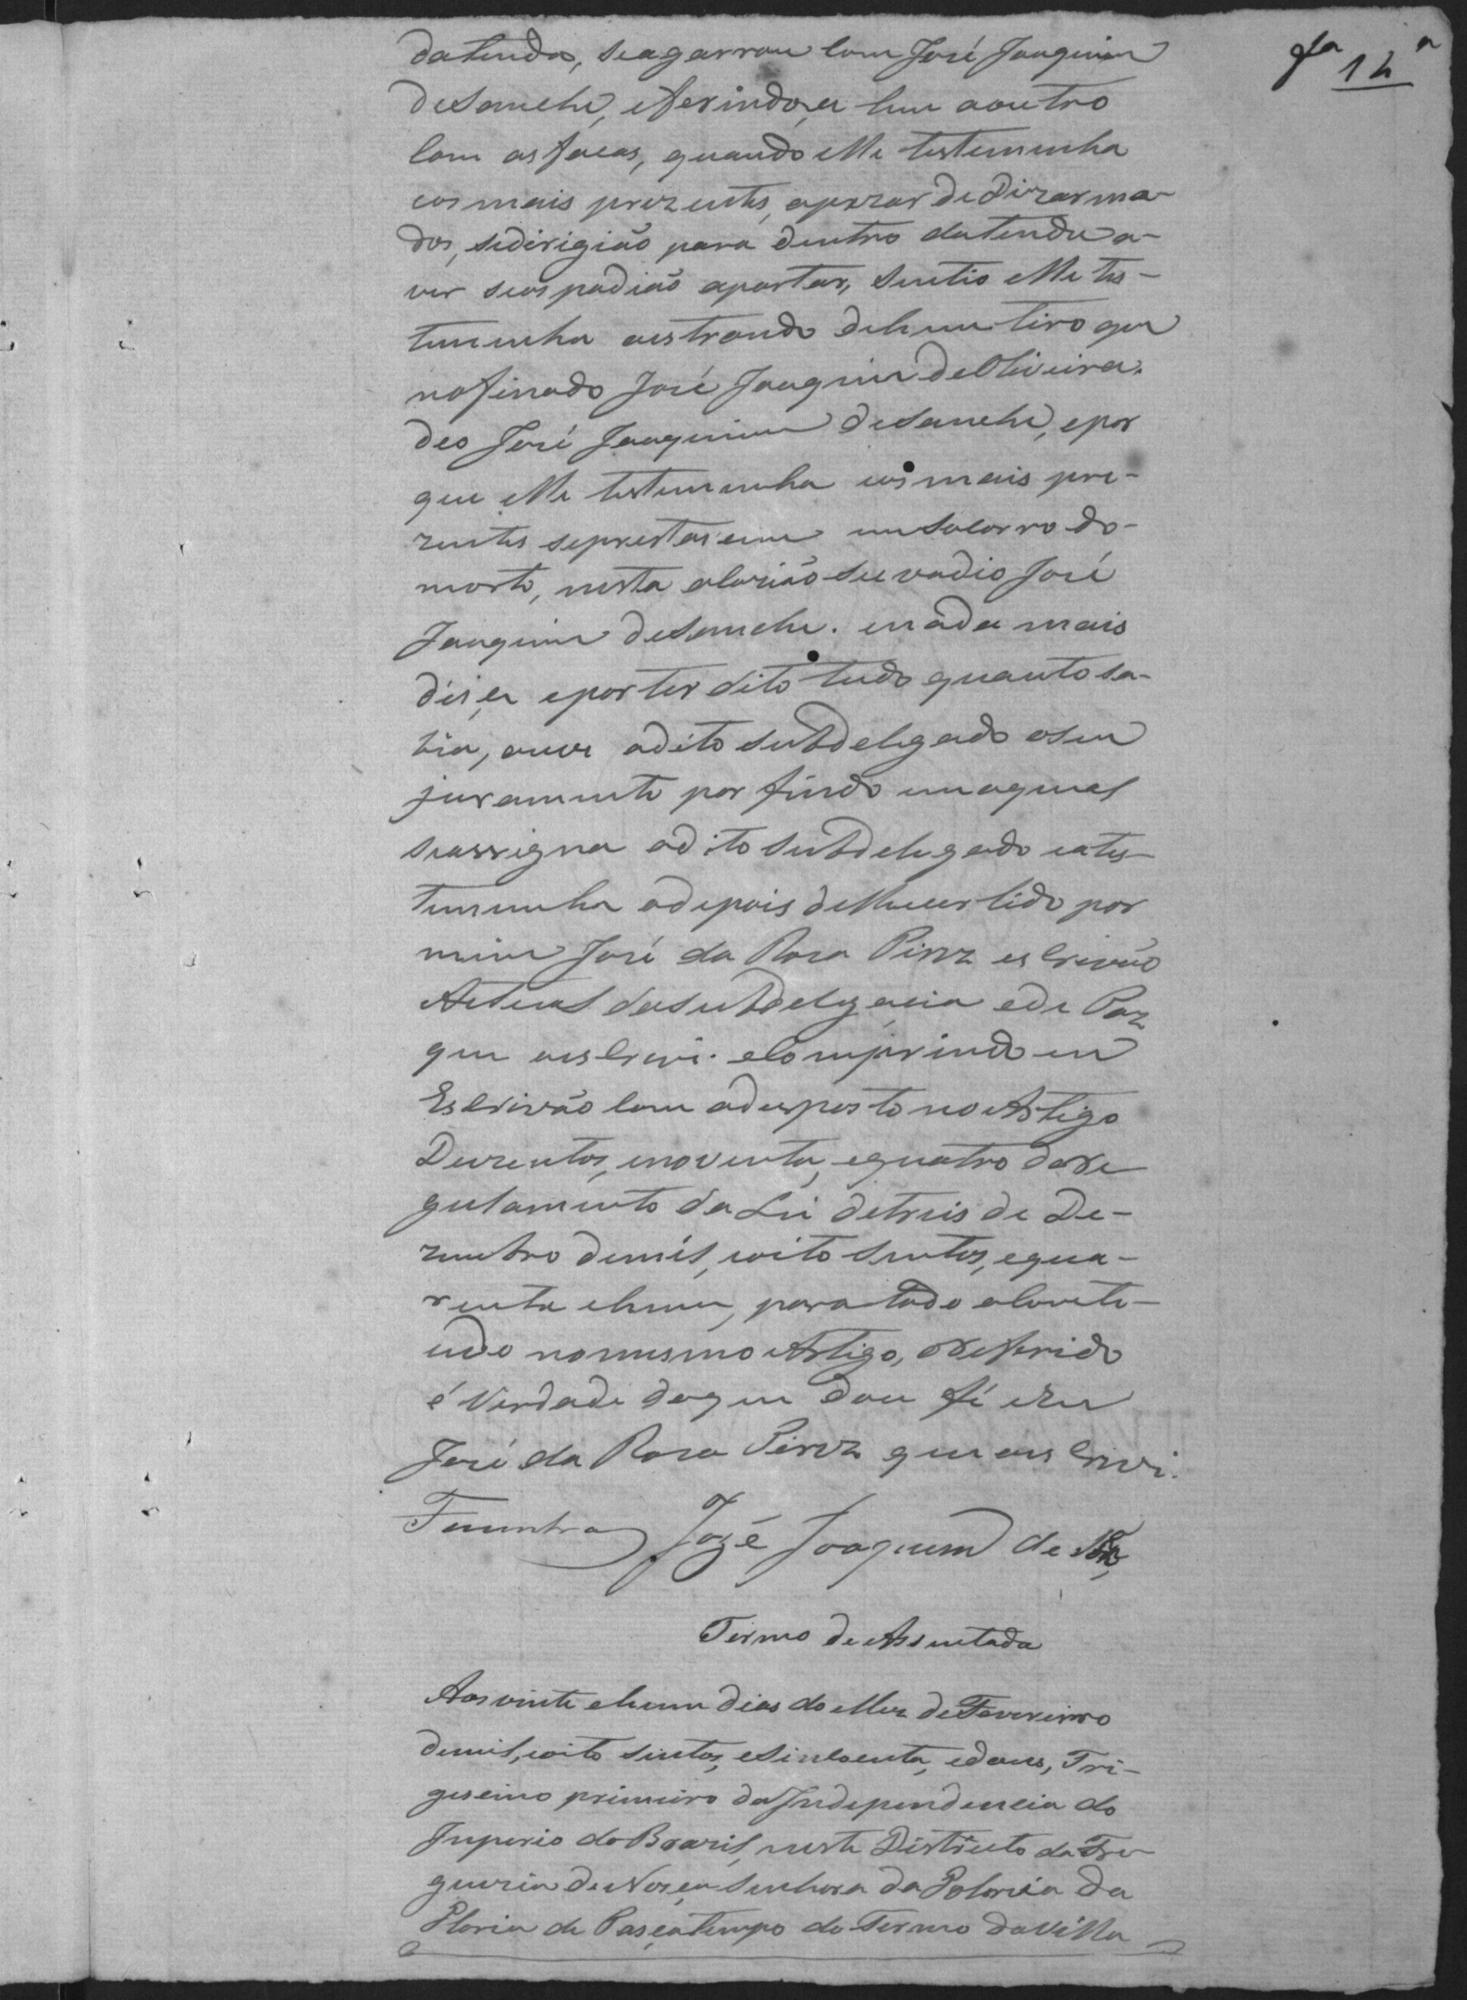 datenda, seagarrou com José Joaquim
deSanche, eferindoce hum aoutro
com asfacas, quando elle testemunha
eosmais prezentes, apezar de dizarma-
dos, sedirigião para dentro datenda a-
ver seospodião apartar, Sentio elle tes-
temunha oestrondo dehum tiro que
nofinado José Joaquim deOliveira.
deo José Joaquim deSanche, epor
que elle testemunha eosmais pre-
zentes seprestasem emsocorro do-
morto, nesta ocazião seevadio José
Joaquim deSanche. enada mais
dice eporter dito tudo quanto sa-
bia, ouve odito subdelegado oseu
juramento por findo emoqual
seassigna odito subdelegado eates-
temunha odepois delheser lido por
mim José da Roza Pirez escrivão
Actual dasubdelegacia ede Paz
que oescrevi. eComprindo eu
Escrivão com odesposto noArtigo
Duzentos, enoventa, equatro doRe
gulamento da Lei detreis de De-
zembro demil, oito sentos, equa-
renta ehum, paratodo oconte-
udo nomesmo Artigo, oReferido
é Verdade doque dou fé eEu
José da Roza Pirez que oescrevi.
José Joaquim de
Termo de Assentada
Aosvinte ehum dias do Mez deFevereiro
demil, oito sentos, eSincoenta, edous, Tri-
gesimo primeiro daIndependencia do
Imperio do Brazil, neste Districto da Fre
guezia de Noça Senhora da
Gloria de Paçatempo do Termo daVilla